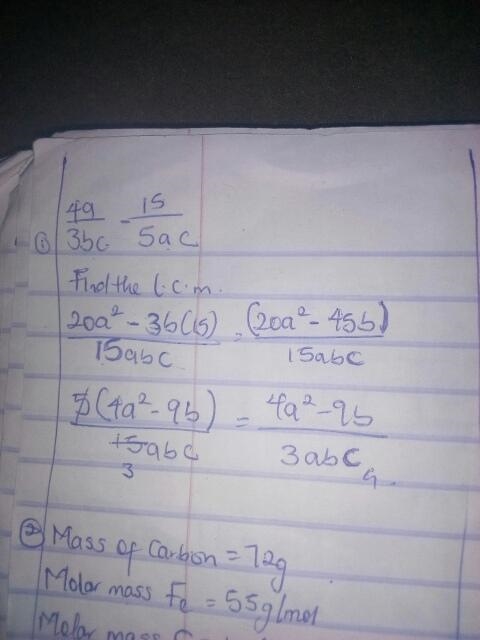 ① 4a/3bc - 15/5ac
Find the l.c.m.
20a² - 3b(15)/15abc = (20a² - 45b)/15abc
5(4a² - 9b)/15abc = 4a² - 9b/3abc
3
② Mass of Carbon = 72g
Molar mass Fe = 55g/mol
Molar mass